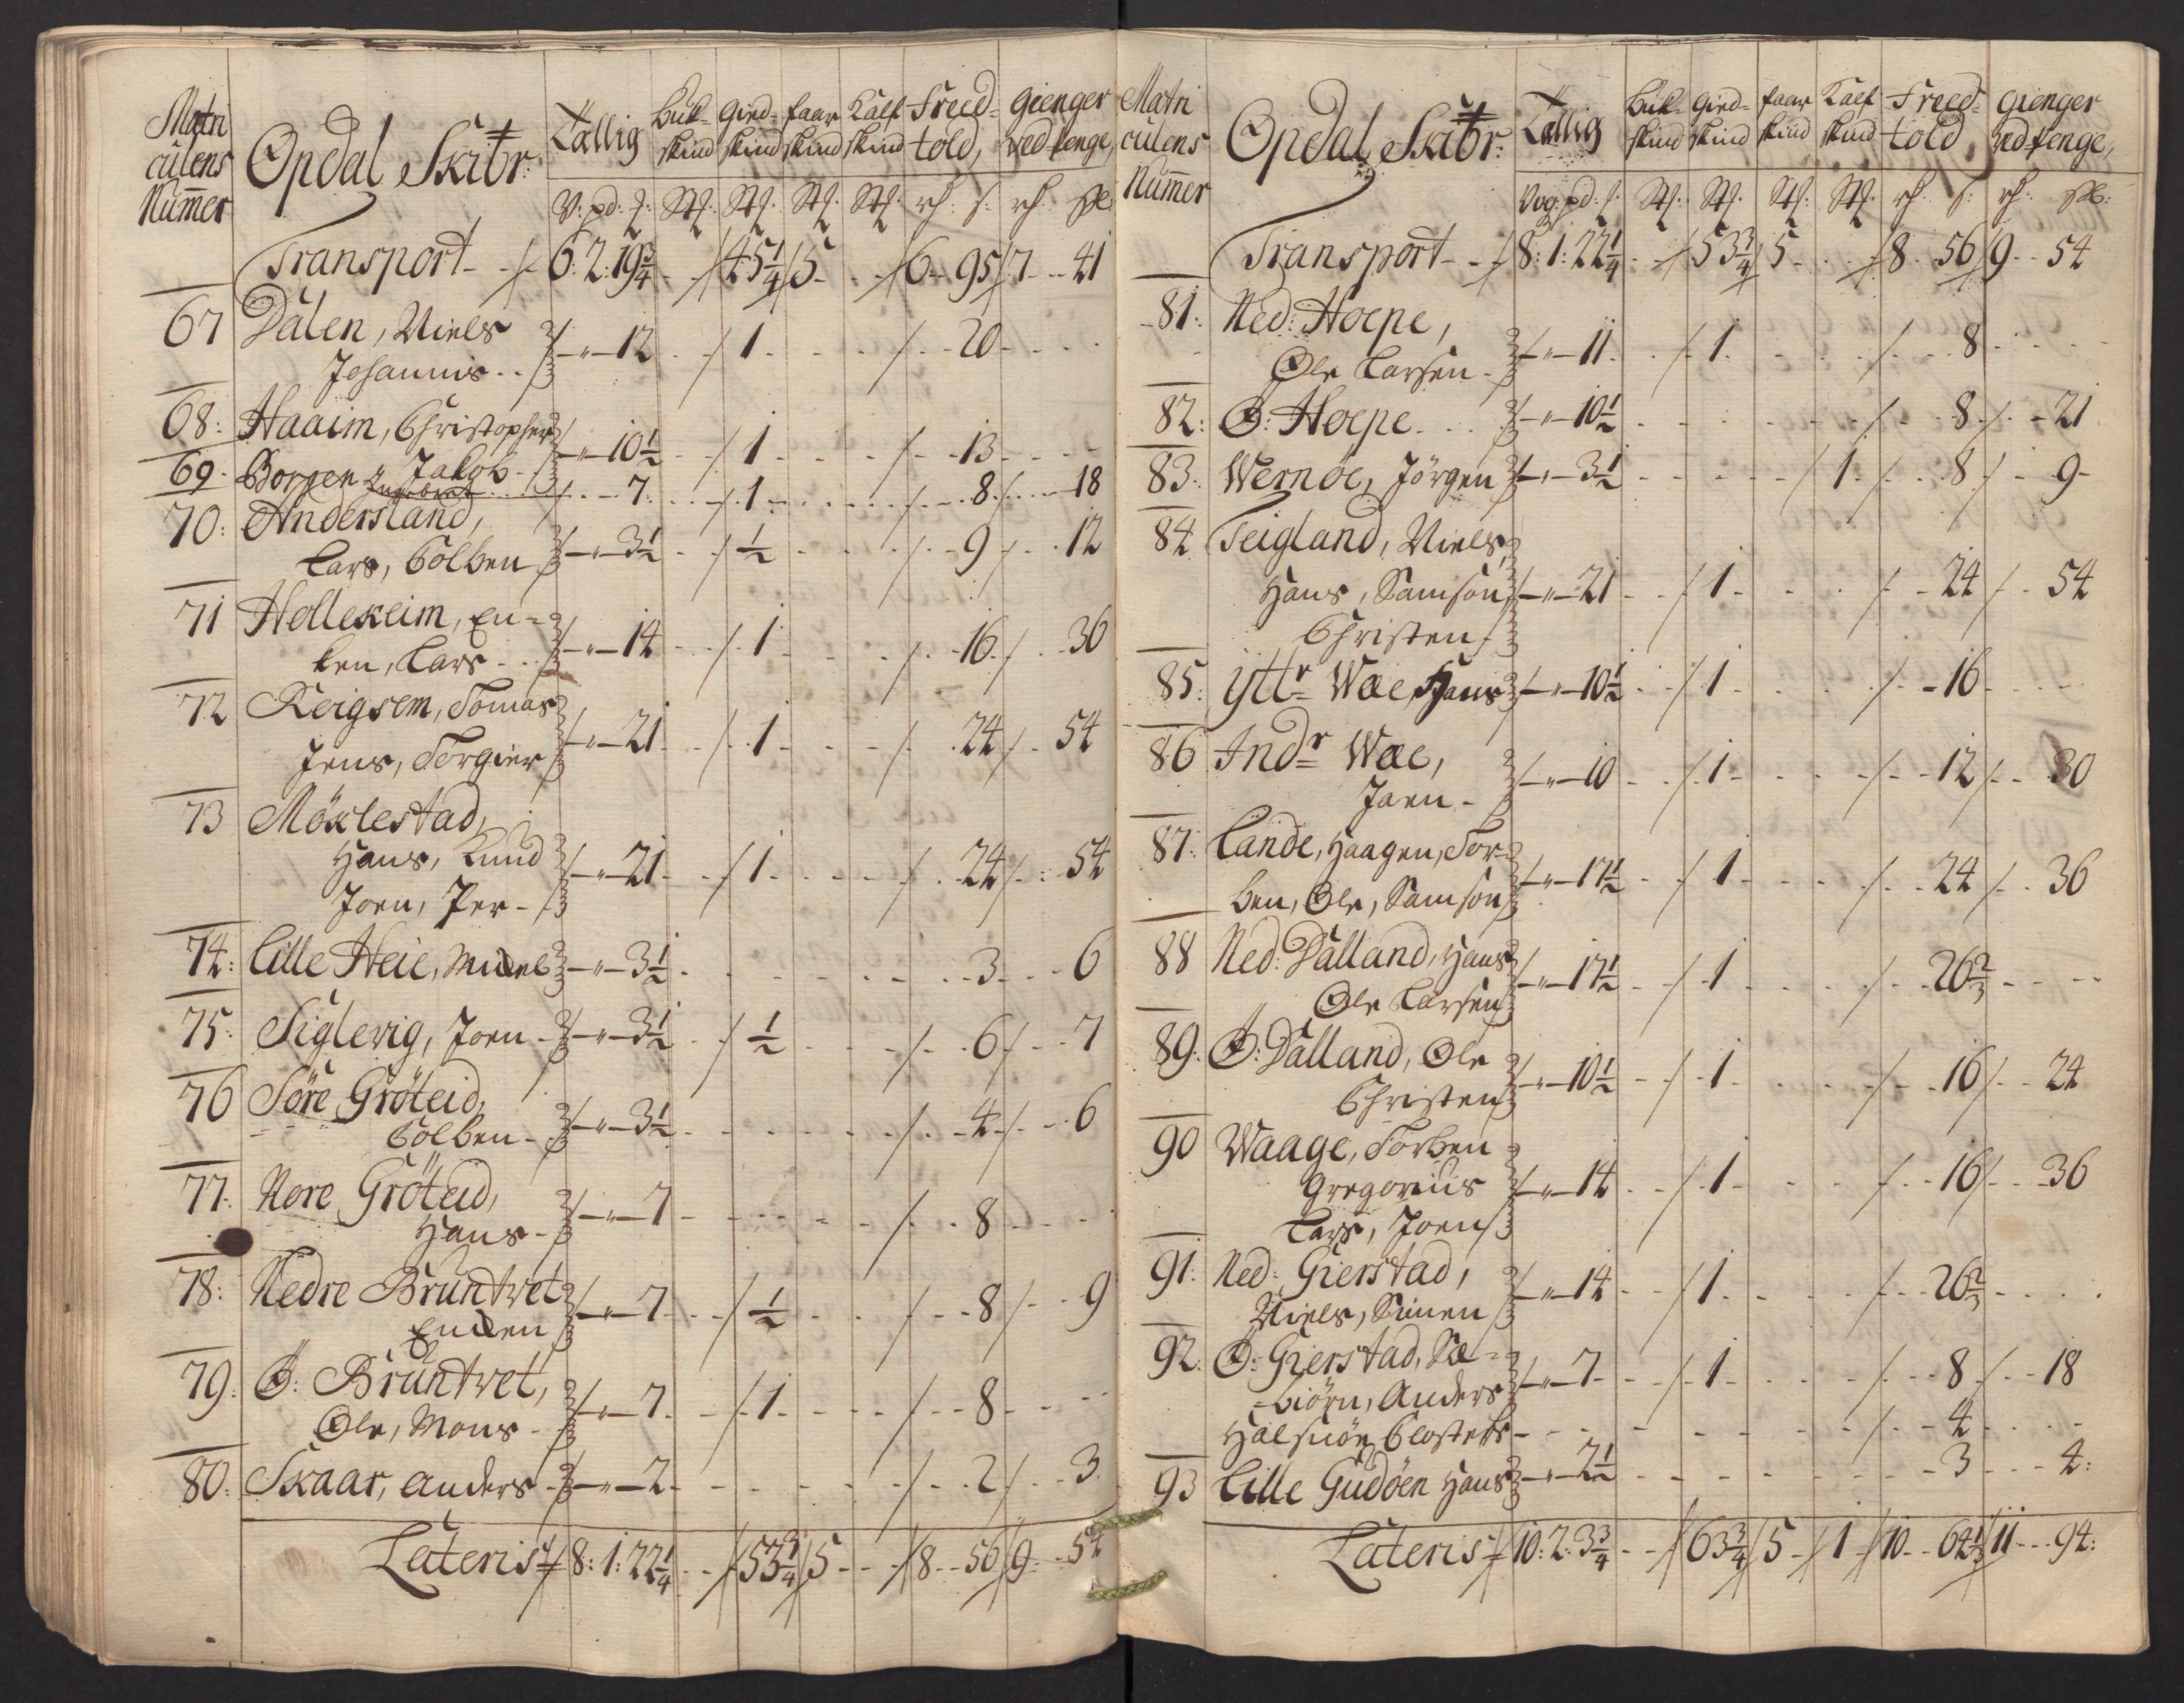 Matri
culens
Nummer
Opdal Skibr:
Tallig
Buk-
skind
Gied-
skind
faar
skind
Kalf
skind
Freed-
told,
gienger
ved penge,
V: pd: Stf: Stf: Stf: Stf: rf: s: rf:
Transport - 6: 2: 19 3/4 - 45 1/4 5 - - 6 - 95 7 - 41
67 Dalen, Niels
Johannis - 12 - 1 - - 20 - -
68: Haaim, Christopher
Jakob - 10 1/2 - 1 - - 13 - -
69 - Borgen - 7 - 1 - - 8 - 18
70: Andersland,
Lars, Colben - 3 1/2 - 1/2 - - 9 - 12
71 Hollekeim, En-
ken, Lars - 14 - 1 - - 16 - 36
72 Reigsem, Tomas
Jens, Torgier - 21 - 1 - - 24 - 54
73 Möklestad,
Hans, Knud
Joen, Per - 21 - 1 - - 24 - 54
74: Lille Heie, Mikel - 3 1/2 - - - 3 - 6
75: Siglevig, Joen - 3 1/2 - 1/2 - - 6 - 7
76 Söre Gröteid,
Colben - 3 1/2 - - - 4 - 6
77: Nore Gröteid,
Hans - 7 - - - 8 - -
78: Nedre Bruntvet
Enken - 7 - 1/2 - - 8 - 9
79: Ö: Bruntvet,
Ole, Mons - 7 - 1 - - 8 - -
80: Skaar, Anders - 2 - - - 2 - 3
Lateris 8: 1: 22 1/4 - 53 3/4 5 - - 8 - 56 9 - 54
Matri
culens
Nummer
Opdal Skibr:
Tallig
Buk-
skind
Gied-
skind
faar
skind
Kalf
skind
Freed-
told,
gienger
ved penge,
Vog: pd: Stf: Stf: Stf: Stf: rf: s: rf:
Transport - 8: 1: 22 1/4 - 53 3/4 5 - - 8 - 56 9 - 54
81: Ned: Hoepe,
Ole Larsen - 11 - 1 - - 8 - -
82: Ö: Hoepe - 10 1/2 - - - 8 - 21
83: Wernöe, Jörgen - 3 1/2 - - 1 - 8 - 9
84 Teigland, Niels,
Hans, Samson
Christen - 21 - 1 - - 24 - 54
85: Ytt^r Wae, Hans - 10 1/2 - 1 - - 16 - -
86 Ind^r Wae,
Joen - 10 - 1 - - 12 - 30
87: Lande, Haagen, Tor-
ben, Ole, Samson - 17 1/2 - 1 - - 24 - 36
88 Ned: Dalland, Hans
Ole Larsen - 17 1/2 - 1 - - 26 2/3 - -
89: Ö: Dalland, Ole
Christen - 10 1/2 - 1 - - 16 - 24
90 Waage, Torben
Gregorius
Lars, Joen - 14 - 1 - - 16 - 36
91: Ned: Gierstad,
Niels, Simen - 14 - 1 - - 26 2/3 - -
92: Ö: Gierstad, Sæ-
biörn, Anders - 7 - 1 - - 8 - 18
Halsnöe Closters - - - - 4 - -
93 Lille Gudöen Hans - 2 1/2 - - - 3 - 4:
Lateris 10: 2: 3 3/4 - 63 3/4 5 - 1 10 - 64 1/3 11 - 94: